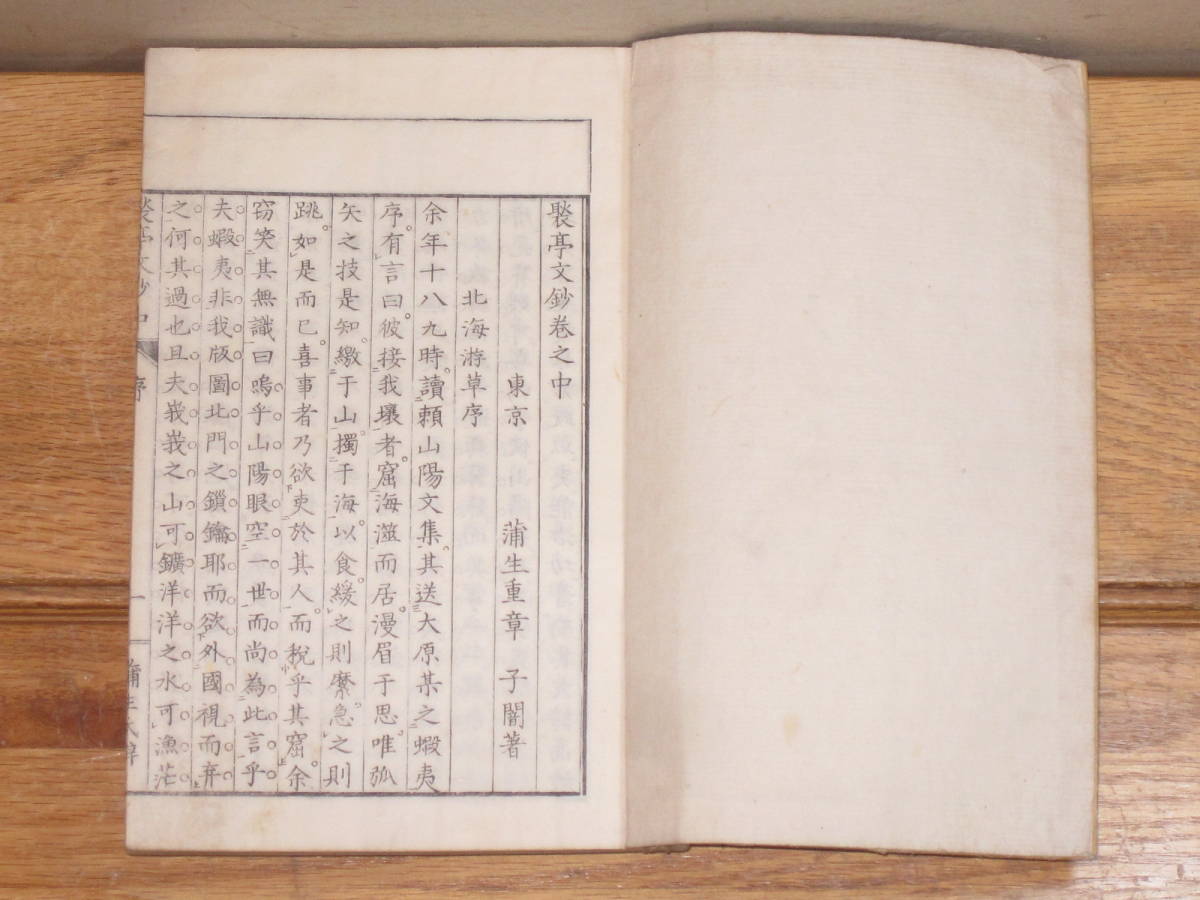 褧亭文鈔卷之中
東京　蒲生重章　子闇著
北海游草序
余年十八九時。讀賴山陽文集。其送大原某之蝦夷
序。有言曰。彼接我壤者。窟海滋而居。漫眉于思。唯弧
矢之技是知。繳于山。擉于海。以食。緩之則縻。急之則
跳。如是而已。喜事者乃欲吏於其人。而稅乎其窟。余
窃笑其無識曰嗚乎山陽眼空一世而尚為此言乎
夫蝦夷非我版圖北門之鎖鑰耶而欲外國視而弃
之何其過也且夫峩峩之山可鑛洋洋之水可漁茫
褧亭文鈔 中
序
一